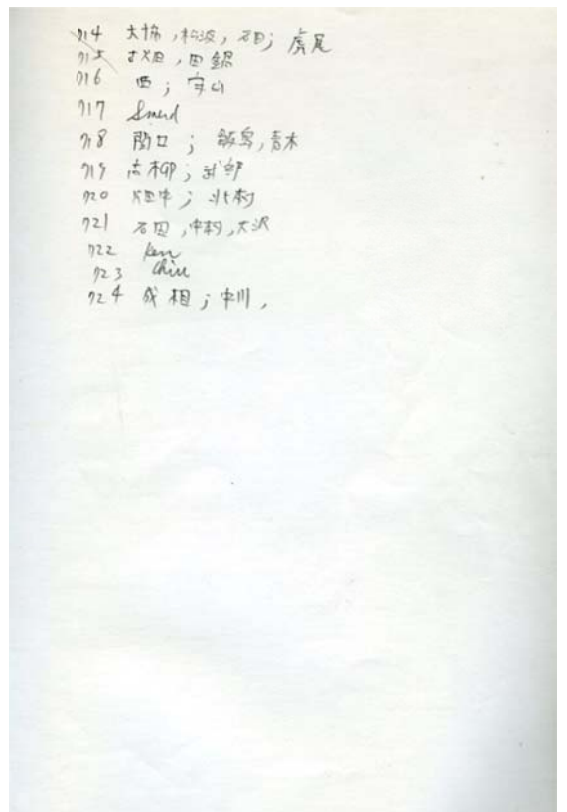 714 大橋,松波,石田; 虎尾
715 古畑,田鍋
716 西; 宇山
717 Smerd
718 関口; 飯島,青木
719 高柳; 武部
720 畑中; 北村
721 石田,中村,大沢
722 Ken
723 Chiu
724 成相; 中川,